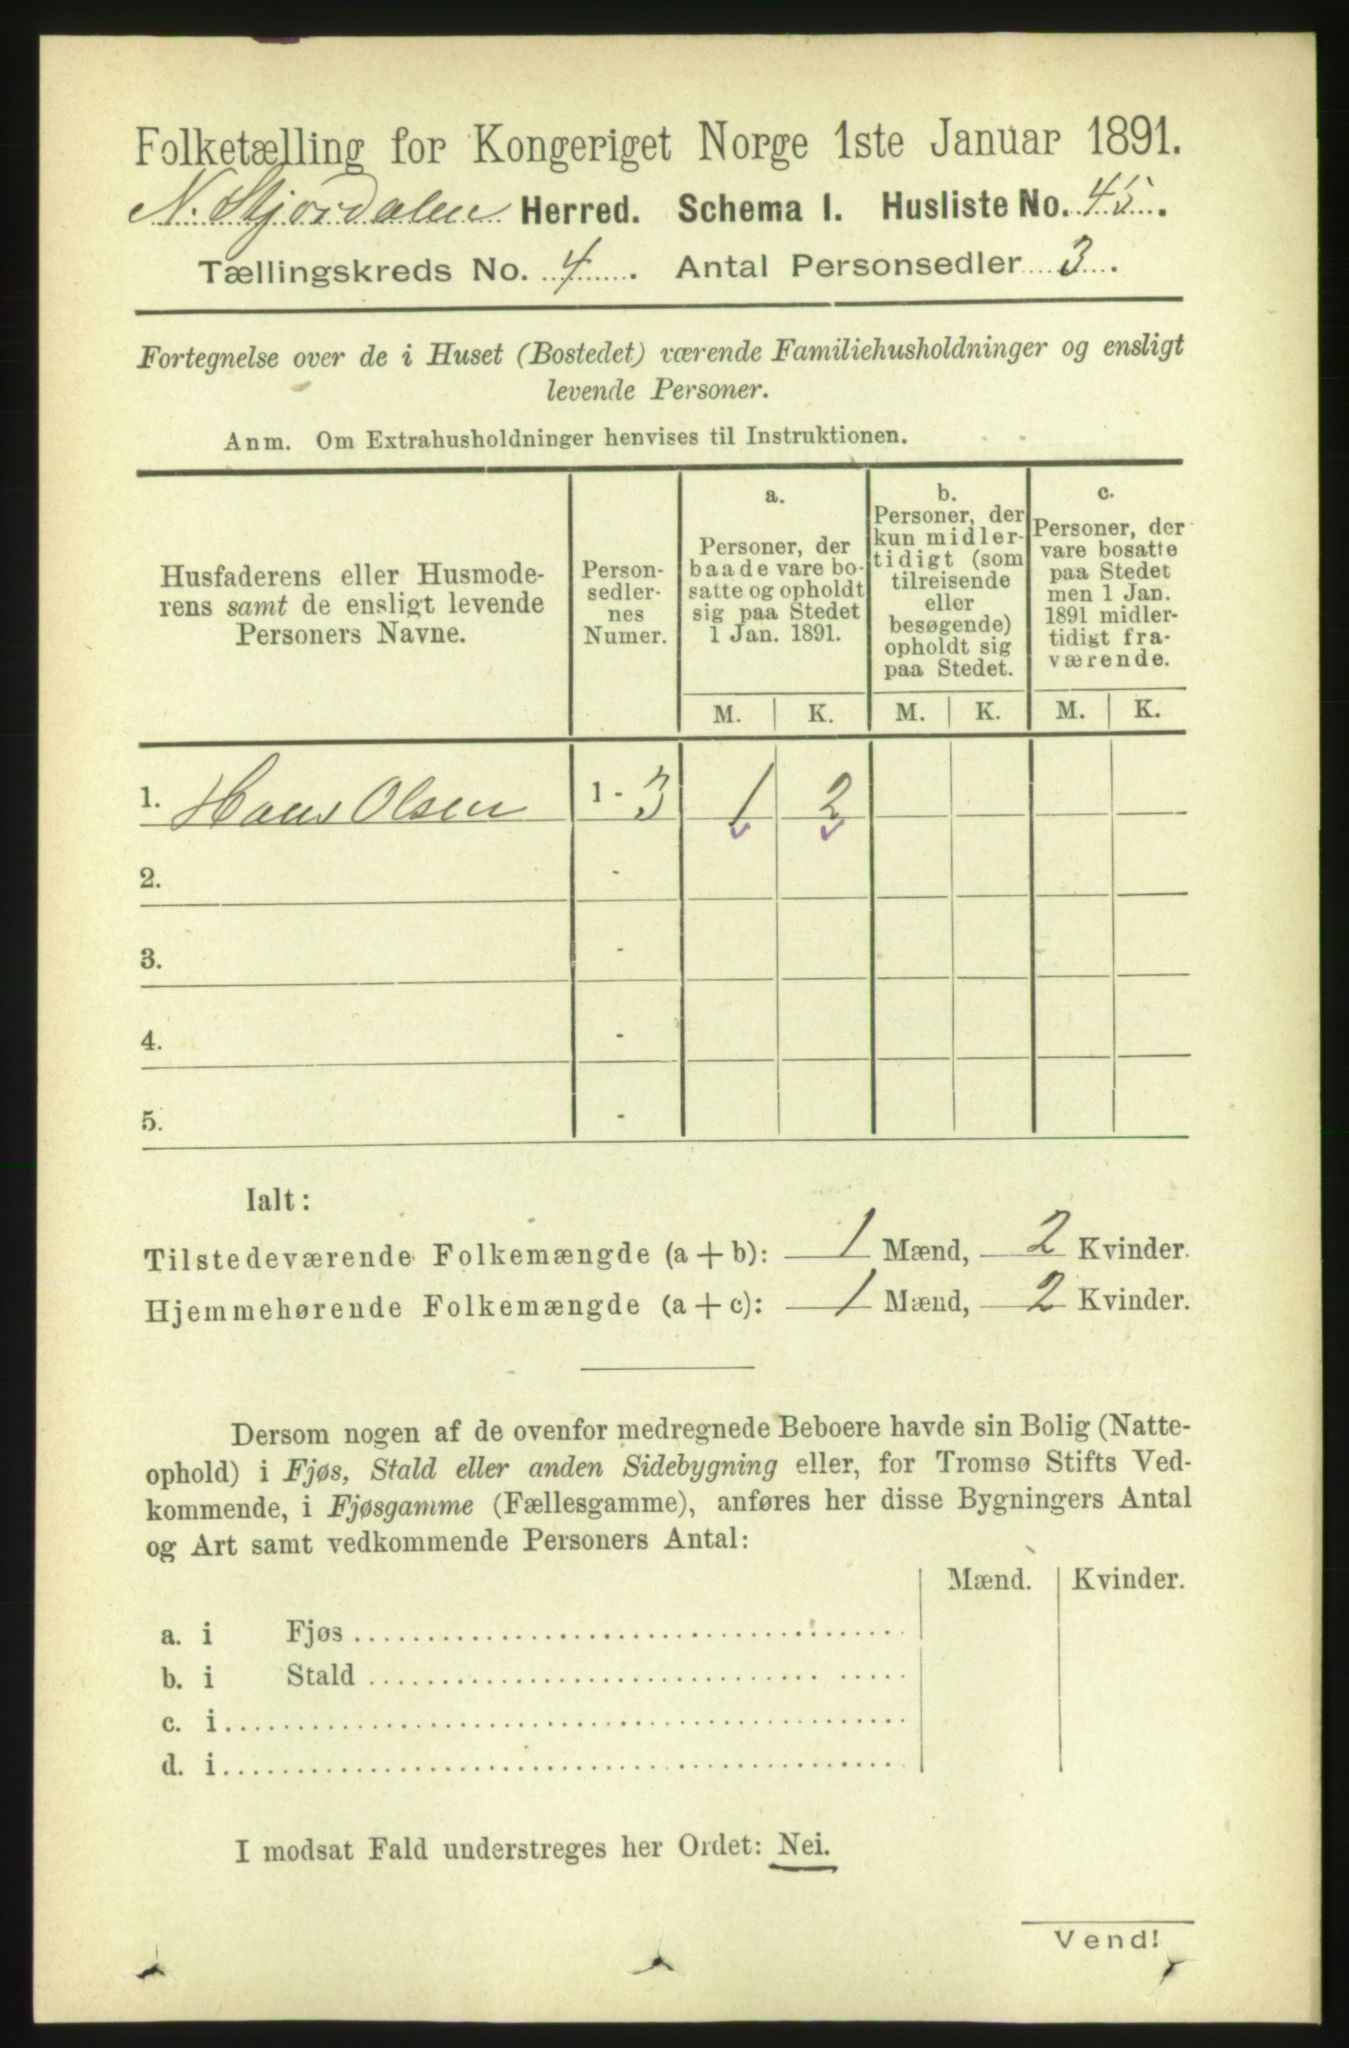 Folketælling for Kongeriget Norge 1ste Januar 1891.
N. Stjørdalen Herred. Schema I. Husliste No. 45.
Tællingskreds No. 4. Antal Personsedler 3.
Fortegnelse over de i Huset (Bostedet) værende Familiehusholdninger og ensligt
levende Personer.
Anm. Om Extrahusholdninger henvises til Instruktionen.
Husfaderens eller Husmode-
rens samt de ensligt levende
Personers Navne.
Person-
sedler-
nes
Numer.
a.
Personer, der
baade vare bo-
satte og opholdt
sig paa Stedet
1 Jan. 1891.
b.
Personer, der
kun midler-
tidigt (som
tilreisende
eller
besøgende)
opholdt sig
paa Stedet.
c.
Personer, der
vare bosatte
paa Stedet
men 1 Jan.
1891 midler-
tidigt fra-
værende.
M. K. M. K. M. K.
1. Hans Olsen 1 - 3 1 2
2. -
3. -
4. -
5. -
Ialt:
Tilstedeværende Folkemængde (a + b): 1 Mænd, 2 Kvinder.
Hjemmehørende Folkemængde (a + c): 1 Mænd, 2 Kvinder.
Dersom nogen af de ovenfor medregnede Beboere havde sin Bolig (Natte-
ophold) i Fjøs, Stald eller anden Sidebygning eller, for Tromsø Stifts Ved-
kommende, i Fjøsgamme (Fællesgamme), anføres her disse Bygningers Antal
og Art samt vedkommende Personers Antal:
Mænd. Kvinder.
a. i Fjøs
b. i Stald
c. i
d. i
I modsat Fald understreges her Ordet: Nei.
Vend!